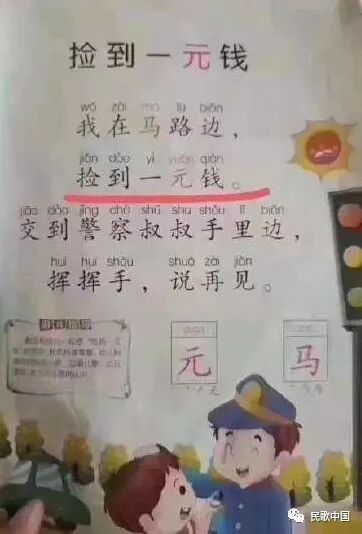 捡到一元钱
wǒ zài mǎ lù biān
我在马路边，
jiǎn dào yì yuán qián
捡到一元钱。
jiāo dào jǐng chá shū shu shǒu lǐ biān
交到警察叔叔手里边，
huī huī shǒu shuō zài jiàn
挥挥手，说再见。
元
马
民歌中国